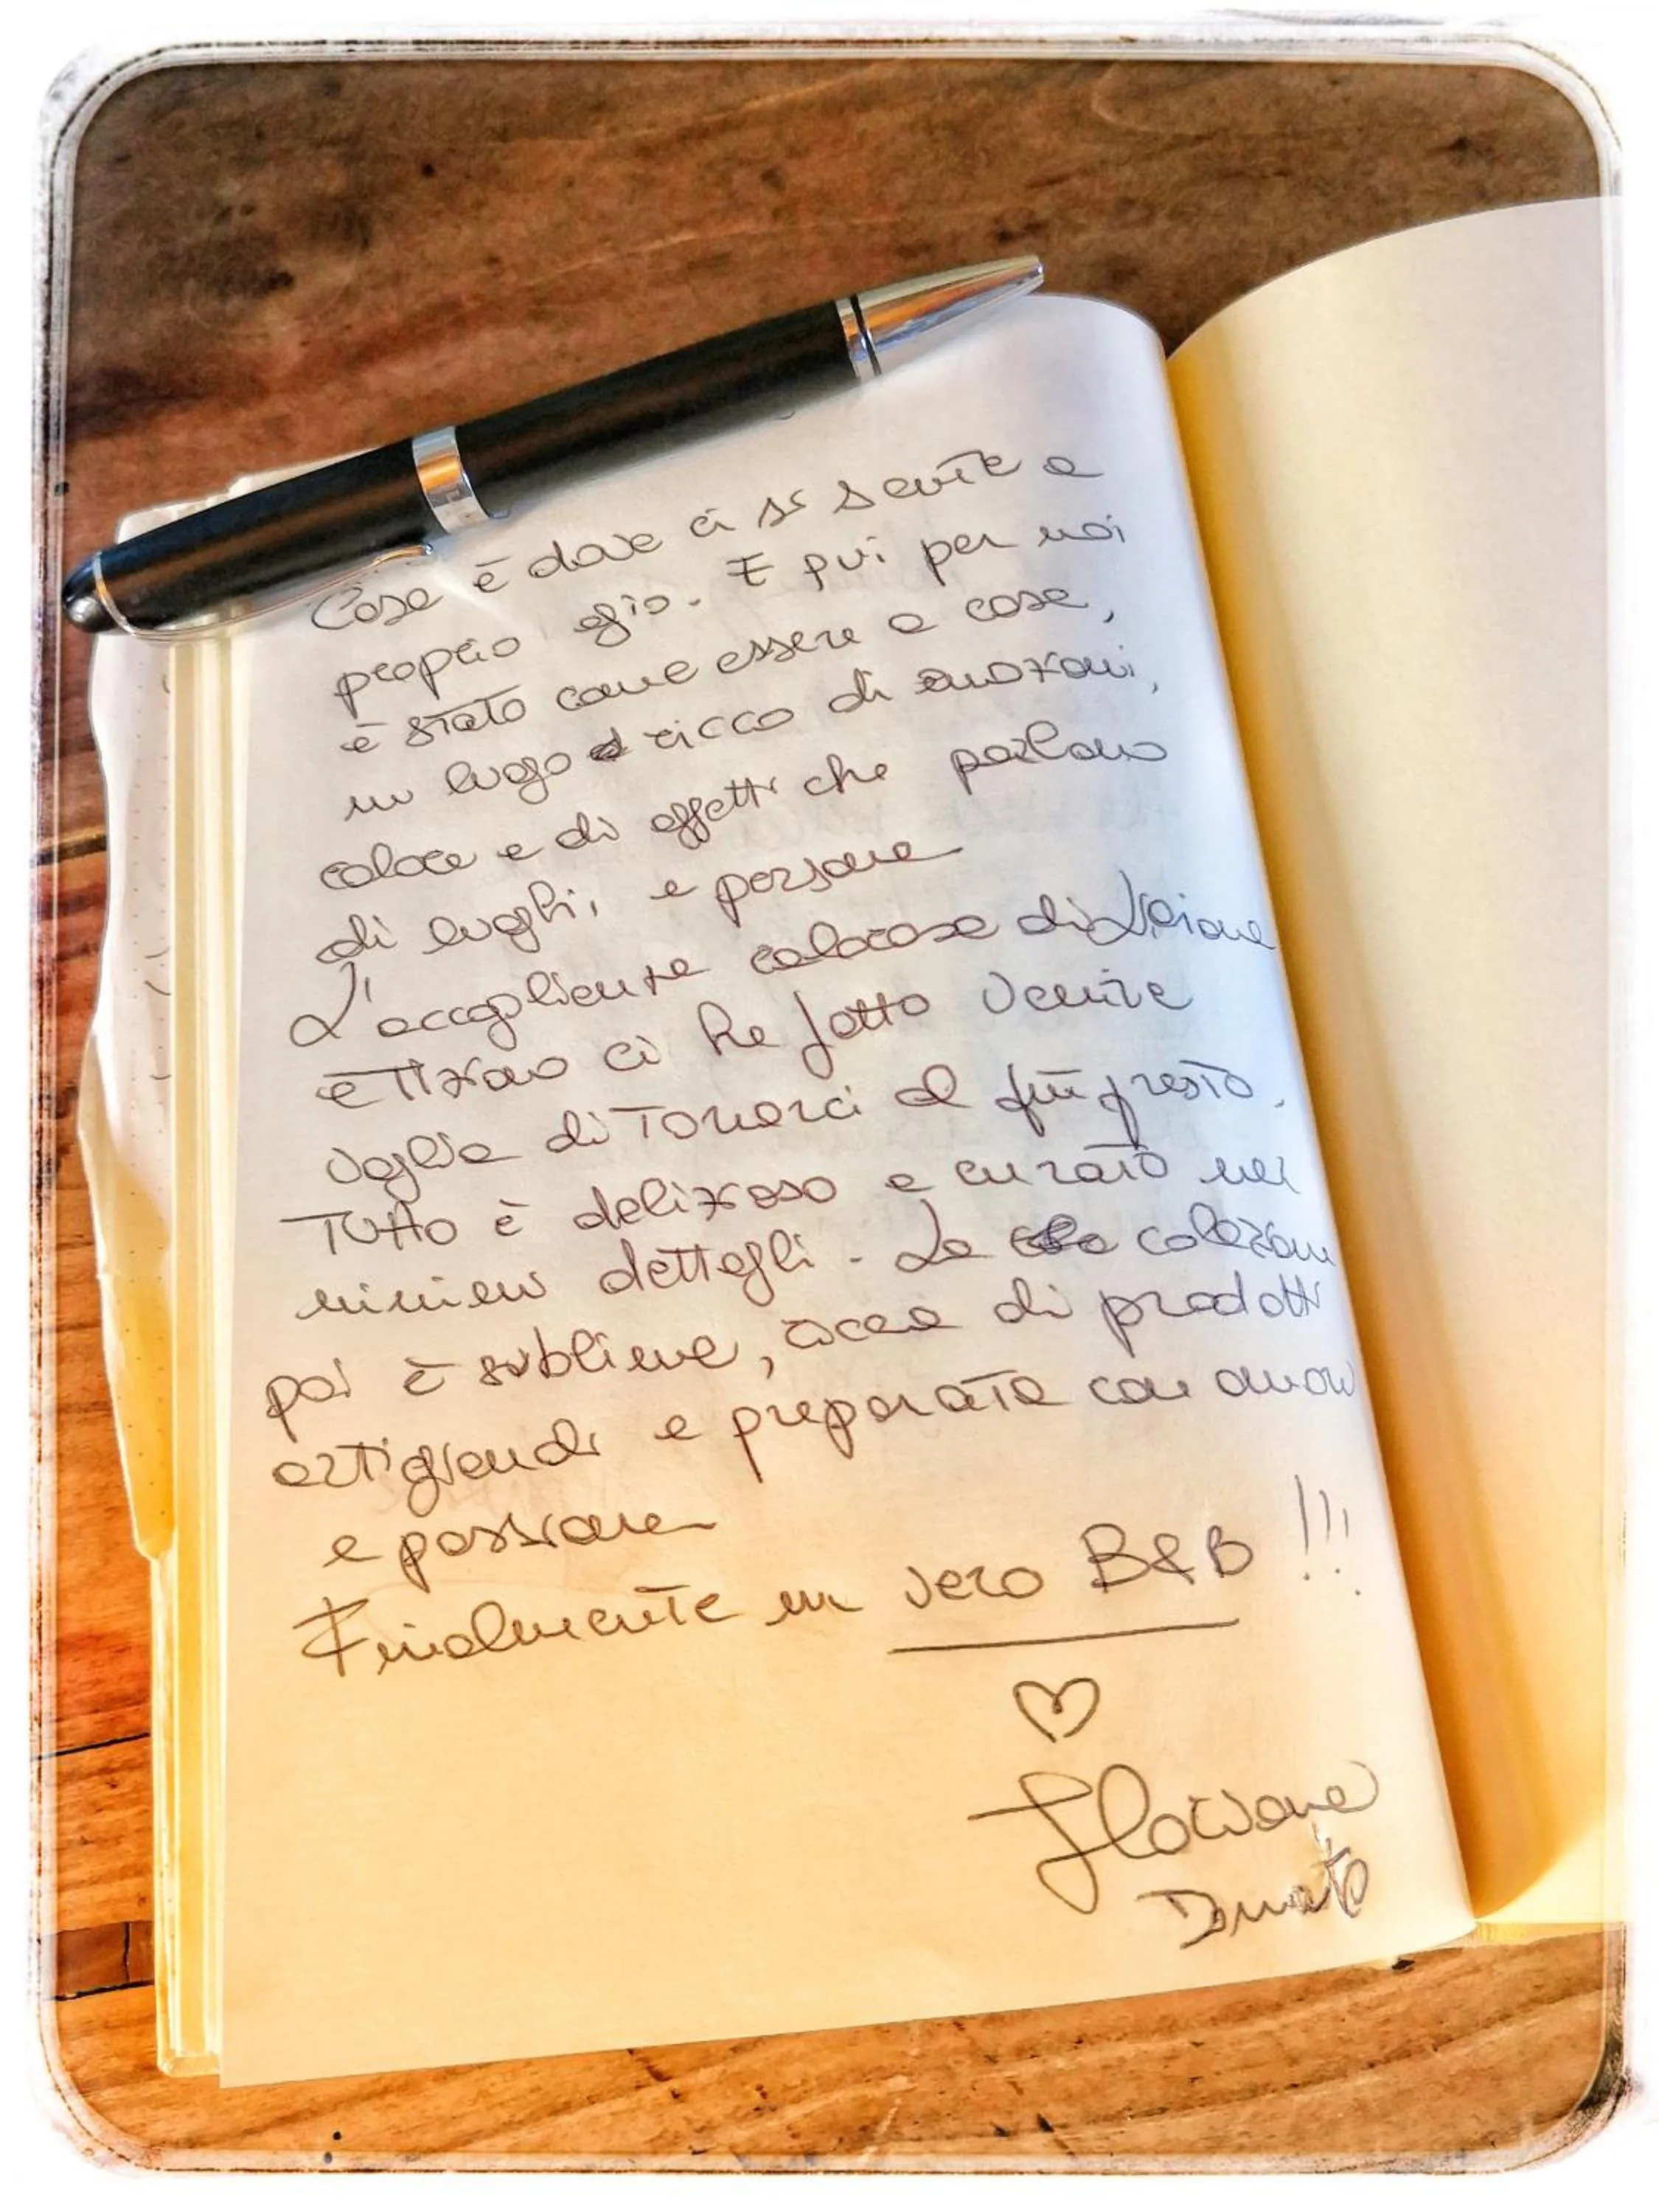 Casa è dove ci si sente a
proprio agio. E qui per noi
è stato come essere a casa,
un luogo ricco di emozioni,
calore e di oggetti che parlano
di luoghi, e persone
L'accoglienza calorosa di
e Tiziano ci ha fatto venire
voglia di tornarci al più presto.
Tutto è delizioso e curato nei
minimi dettagli. La colazione
poi è sublime, ricca di prodotti
artigianali e preparata con amore
e passione
Finalmente un vero B&B !!!
♡
Floriana
Donato